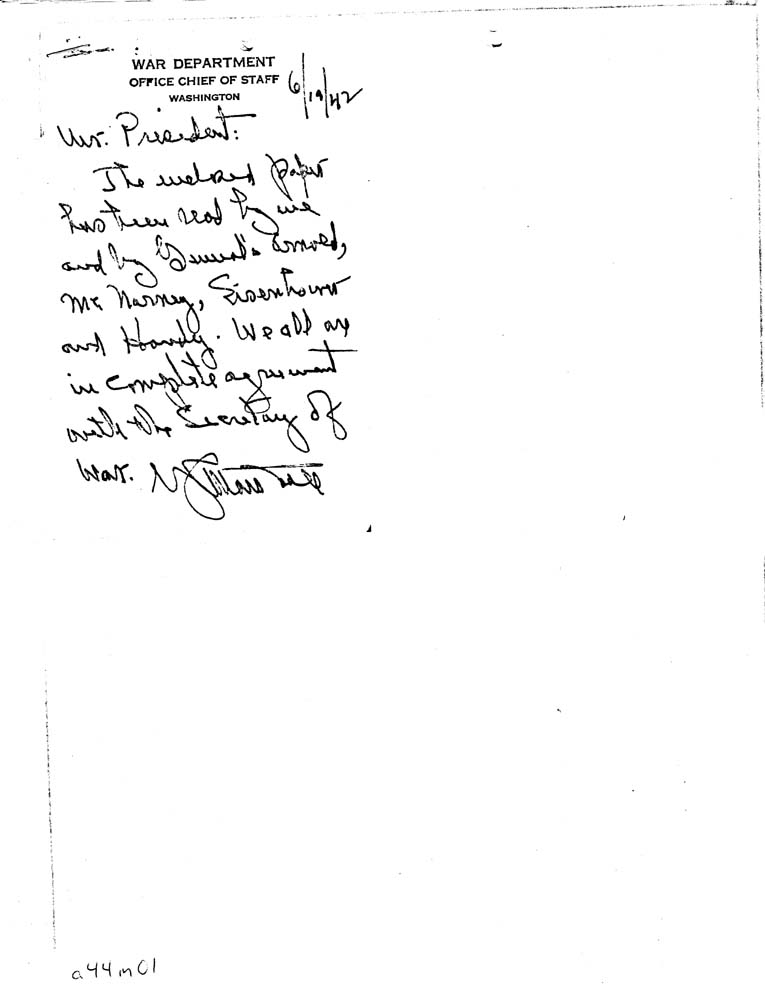 WAR DEPARTMENT
OFFICE CHIEF OF STAFF
WASHINGTON
6/19/42
Mr. President:
The enclosed paper
has been read by me
and by Generals Arnold,
McNarney, Eisenhower
and Handy. We all are
in complete agreement
with the Secretary of
War. G Marshall
a44m01